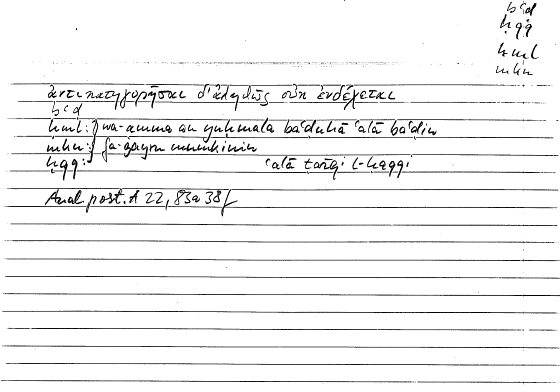 bʿḍ
ḥqq
ḥml
mkn
ἀντικατηγορῆσαι δ' ἀληθῶς οὐκ ἐνδέχεται
bʿḍ
ḥml: } wa-ammā an yuḥmala baʿḍuhā ʿalā baʿḍin
mkn: } fa-ġayru mumkinin
ḥqq: ʿalā ṭarīqi l-ḥaqqi
Anal. post. A 22, 83a38f